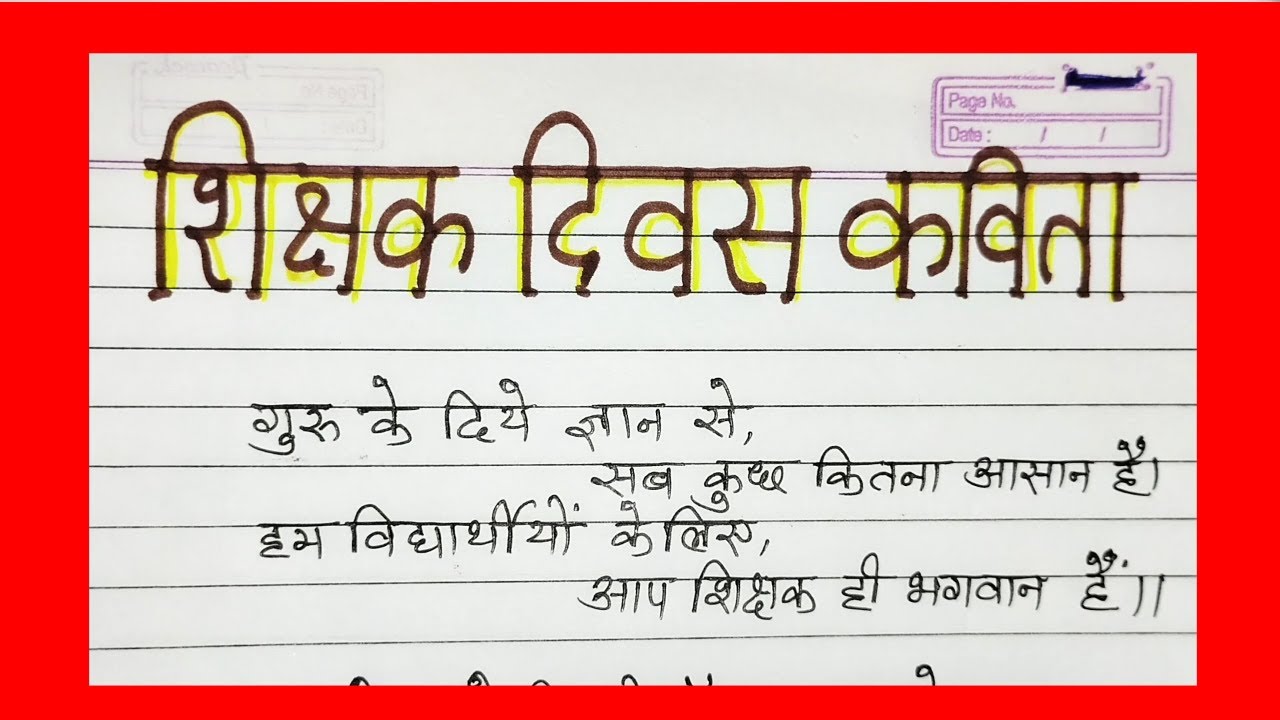 Page No.
Date : / /
शिक्षक दिवस कविता
गुरु के दिये ज्ञान से,
सब कुछ कितना आसान है।
हम विद्यार्थीयों के लिए,
आप शिक्षक ही भगवान हैं।।